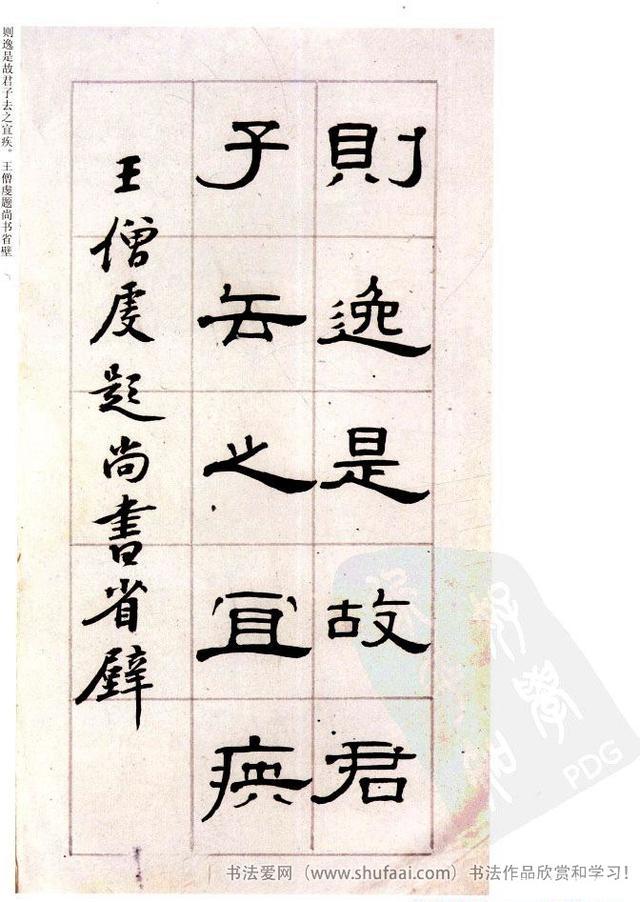 則逸是故君
子去之宜疾
王僧虔題尚書省壁
则逸是故君子去之宜疾。王僧虔题尚书省壁
书法爱网（www.shufaai.com）书法作品欣赏和学习！
PDG